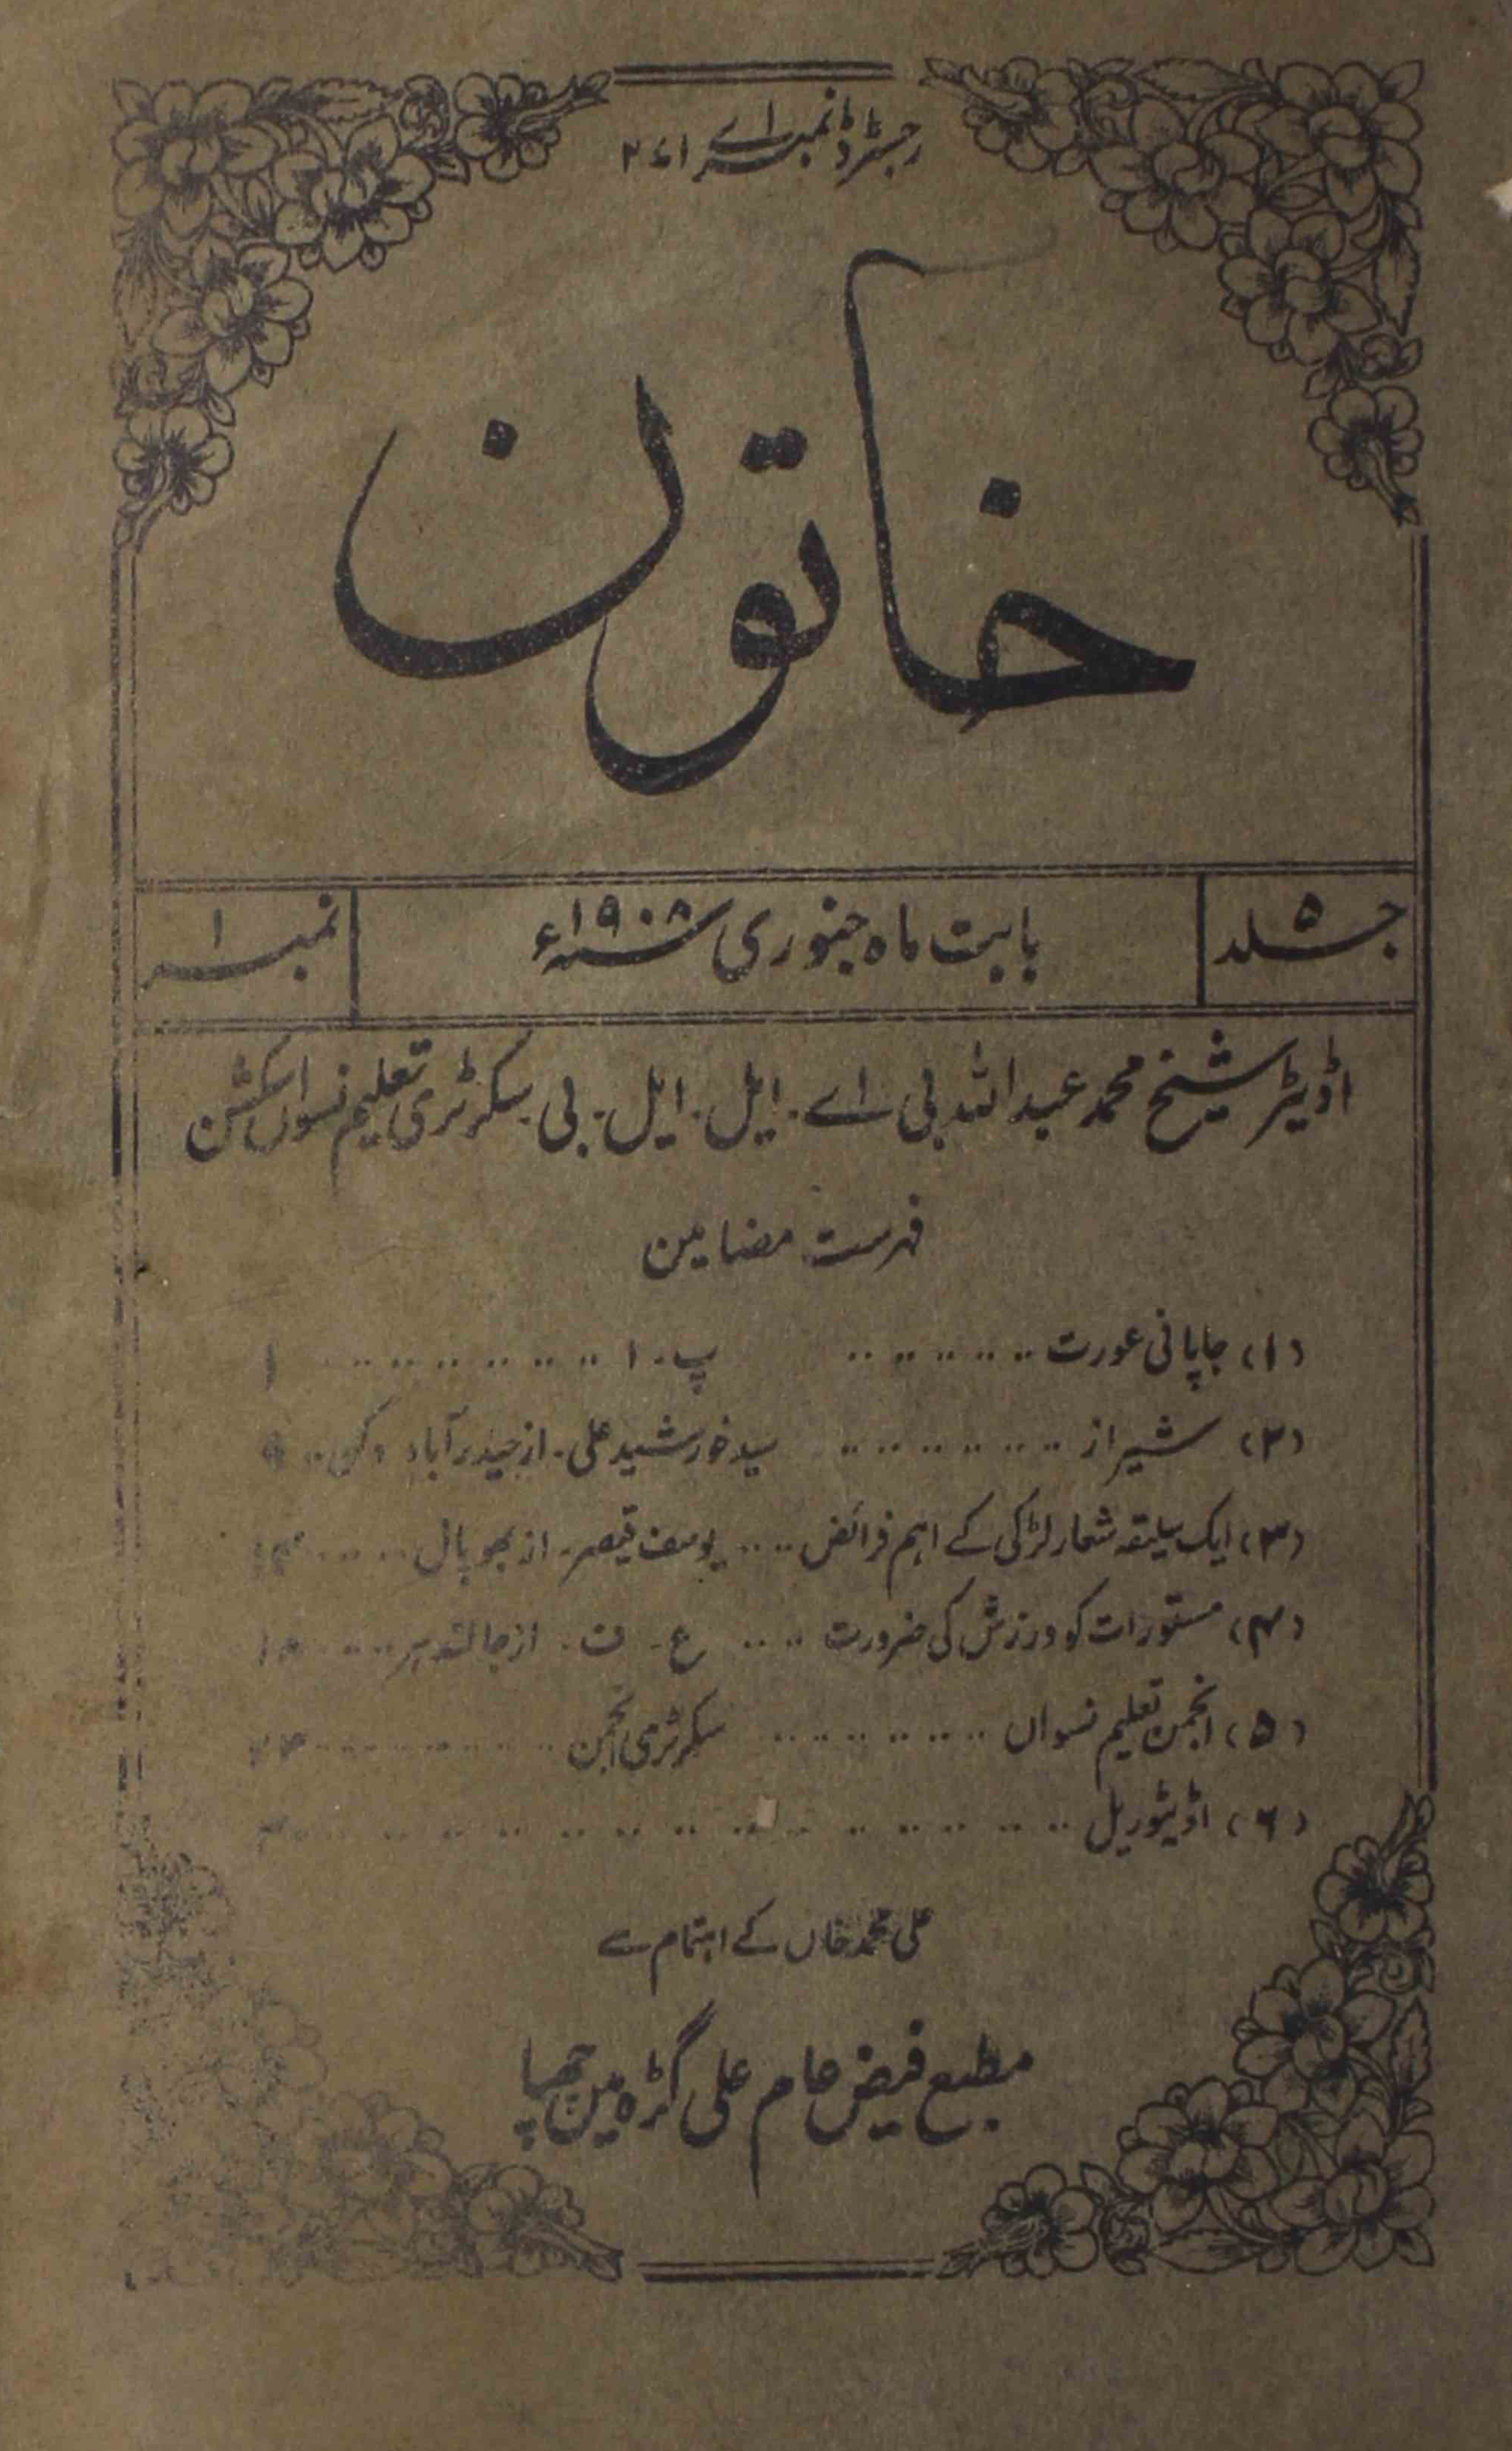 رجسٹرڈ نمبر اے ۲۶۱
خاتون
جلد ۵
بابت ماہ جنوری سنہ ۱۹۰۸ء
نمبر ۱
اڈیٹر شیخ محمد عبداللہ بی اے۔ ایل۔ ایل۔ بی سکرٹری تعلیم نسواں سکشن
فہرست مضامین
(۱) جاپانی عورت .. .. .. .. .. پ۔ ا .. .. .. .. .. .. ۱
(۲) شیراز .. .. .. .. .. .. سید خورشید علی۔ از حیدرآباد دکن ..
(۳) ایک سلیقہ شعار لڑکی کے اہم فرائض .... یوسف قیصر۔ از بھوپال .. .. ..
(۴) مستورات کو ورزش کی ضرورت .... ع۔ ت۔ از جالندہر .. .. ..
(۵) انجمن تعلیم نسواں .. .. .. .. .. سکرٹری انجمن .. .. .. .. .. ..
(۶) اڈیٹوریل .. .. .. .. .. .. .. .. .. .. .. ..
علی محمد خاں کے اہتمام سے
مطبع فیض عام علی گڑہ مین چھپا